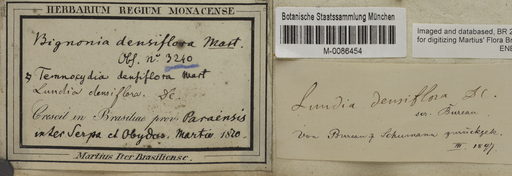 HERBARIUM REGIUM MONACENSE
Bignonia densiflora Mart.
Obs. n. 3240
Temnocydia densiflora Mart
Lundia densiflora. Dc.
Crescit in Brasiliae prov. Paraensis
inter Serpa et Obydos. Martio 1820.
Martius Iter Brasiliense.
Botanische Staatssammlung München
M-0086454
Imaged and databased, BR 2
for digitizing Martius' Flora Br
Lundia densiflora DC.
Bureau
von Bureau & Schumann zurückgek.
III. 1897.